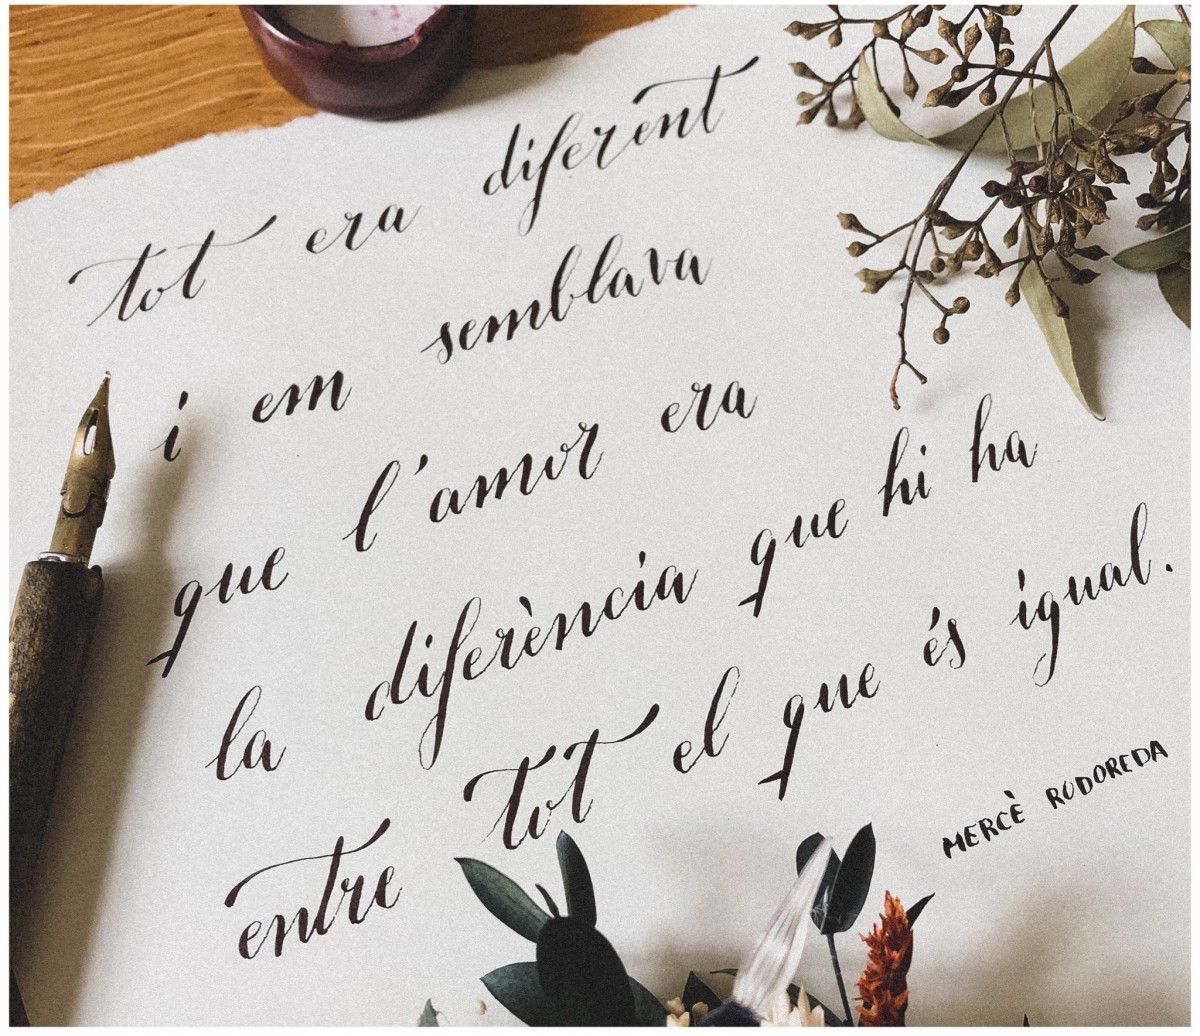 tot era diferent
i em semblava
que l'amor era
la diferència que hi ha
entre tot el que és igual.
MERCÈ RODOREDA